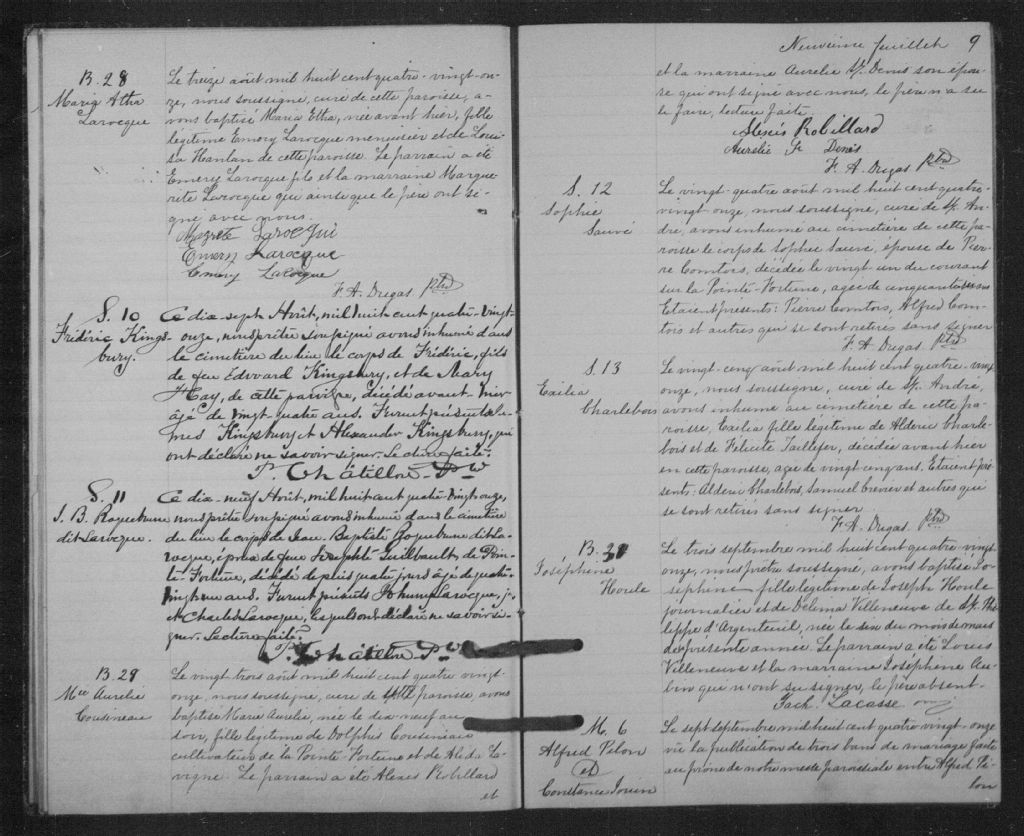 B. 28
Maria Etha
Larocque
Le treize août mil huit cent quatre-vingt-on-
ze, nous soussigné, curé de cette paroisse, a-
vons baptisé Maria Etha, née avant hier, fille
légitime Emery Larocque menuisier et de Loui-
sa Hanlan de cette paroisse. Le parrain a été
Emery Larocque fils et la marraine Margue-
rite Larocque qui ainsi que le père ont si-
gné avec nous.
Larocque
Emery Larocque
Emery Larocque
F. A. Dugas Ptre
S. 10
Frédéric Kings-
bury.
Ce dix-sept Août, mil huit cent quatre-vingt-
onze, nous prêtre soussigné avons inhumé dans
le cimetière du lieu le corps de Frédéric, fils
de feu Edvoard Kingsbury, et de Mary
Hay, de cette paroisse, décédé avant-hier
âgé de vingt-quatre ans. Furent présents Ja-
mes Kingsbury et Alexander Kingsbury, qui
ont déclaré ne savoir signer. Lecture faite.
P. Châtillon Ptre
S. 11
J. B. Roquebrune
dit Larocque.
Ce dix-neuf Août, mil huit cent quatre-vingt onze,
nous prêtre soussigné avons inhumé dans le cimetière
du lieu le corps de Jean-Baptiste Roquebrune dit La-
rocque, époux de feue Josephte Guilbault, de Poin-
te-Fortune, décédé depuis quatre jours âgé de quatre-
vingt un ans. Furent présents Larocque,
et Charles Larocque, lesquels ont déclaré ne savoir si-
gner. Lecture faite.
P. Châtillon Ptre
B. 29
Mie Aurelie
Cousineau
Le vingt-trois août mil huit cent quatre vingt-
onze, nous soussigné, curé de cette paroisse, avons
baptisé Marie Aurelie, née le dix-neuf au
soir, fille légitime de Dolphis Cousineau
cultivateur de la Pointe-Fortune et de La-
vigne. Le parrain a été Alexis Robillard
et
Neuvième feuillet 9
et la marraine Aurelie St. Denis son épou-
se qui ont signé avec nous, le père n'a su
le faire, lecture faite
Alexis Robillard
Aurelie St Denis
F. A. Dugas Ptre
S. 12
Sophie
Sauvé
Le vingt-quatre août mil huit cent quatre-
vingt onze, nous soussigné, curé de St. An-
dré, avons inhumé au cimetière de cette pa-
roisse le corps de Sophie Sauvé, épouse de Pier-
re Comtois, décédée le vingt-un du courant
sur la Pointe-Fortune, agée de cinquante ans
Etaient présents: Pierre Comtois, Alfred Com-
tois et autres qui se sont retirés sans signer
F. A. Dugas Ptre
S. 13
Exilia
Charlebois
Le vingt-cinq août mil huit cent quatre-vingt
onze, nous soussigné, curé de St. André,
avons inhumé au cimetière de cette pa-
roisse, Exilia fille légitime de Alderic Charle-
bois et de Félicité Taillefer, décédée avant hier
en cette paroisse, agée de vingt-cinq ans. Etaient pré-
sents: Alderic Charlebois, Samuel Crevier et autres qui
se sont retirés sans signer
F. A. Dugas Ptre
B. 30
Joséphine
Houle
Le trois septembre mil huit cent quatre-vingt-
onze, nous prêtre soussigné, avons baptisé Jo-
séphine fille légitime de Joseph Houle
journalier et de Délima Villeneuve de St. Phi-
lippe d'Argenteuil, née le six du mois de mars
de présente année. Le parrain a été Louis
Villeneuve et la marraine Joséphine Au-
bin qui n'ont su signer, le père absent.
Zach. Lacasse
M. 6
Alfred Pilon
et
Constance Jouin
Le sept septembre mil huit cent quatre vingt-onze
vu la publication de trois bans de mariage faite
au prône de notre messe paroissiale entre Alfred Pi-
lon